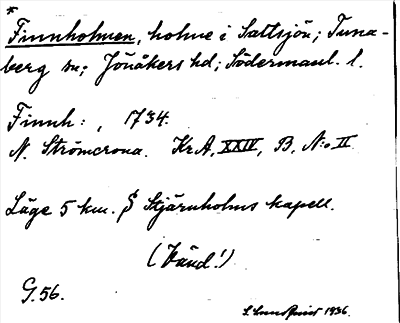 *
Finnholmen, holme i Saltsjön; Tuna-
berg sn; Jönåkers hd; Södermanl. l.
Finnh: , 1734.
N. Strömcrona. Kr.A, XXIV, B. N:o II
Läge 5 km. S Stjärnholms kapell.
(Vänd!)
G. 56.
S. Lundqvist 1936.